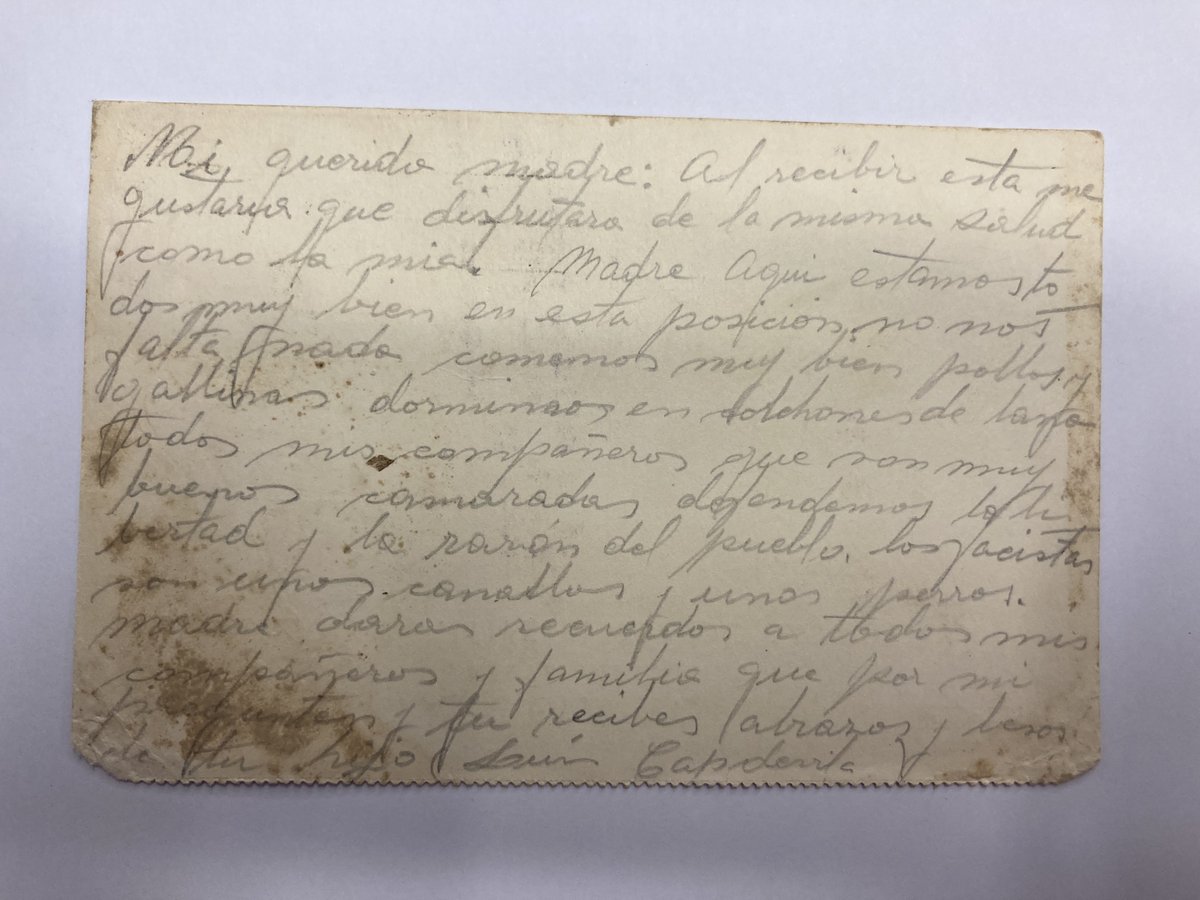 Mi querida madre: Al recibir esta me
gustarya que disfrutara de la misma salud
como la mia. Madre Aqui estamos to
dos muy bien en esta posición, no nos
falta nada comemos muy bien pollos, y
gallinas dormimos en colchones de lana
todos mis compañeros que son muy
buenos camaradas defendemos la li
bertad y la razón del pueblo. los facistas
son unos canallas y unos perros.
madre daras recuerdos a todos mis
compañeros y familia que por mi
pregunten y tu recibes abrazos y besos
de tu hijo Capdevila